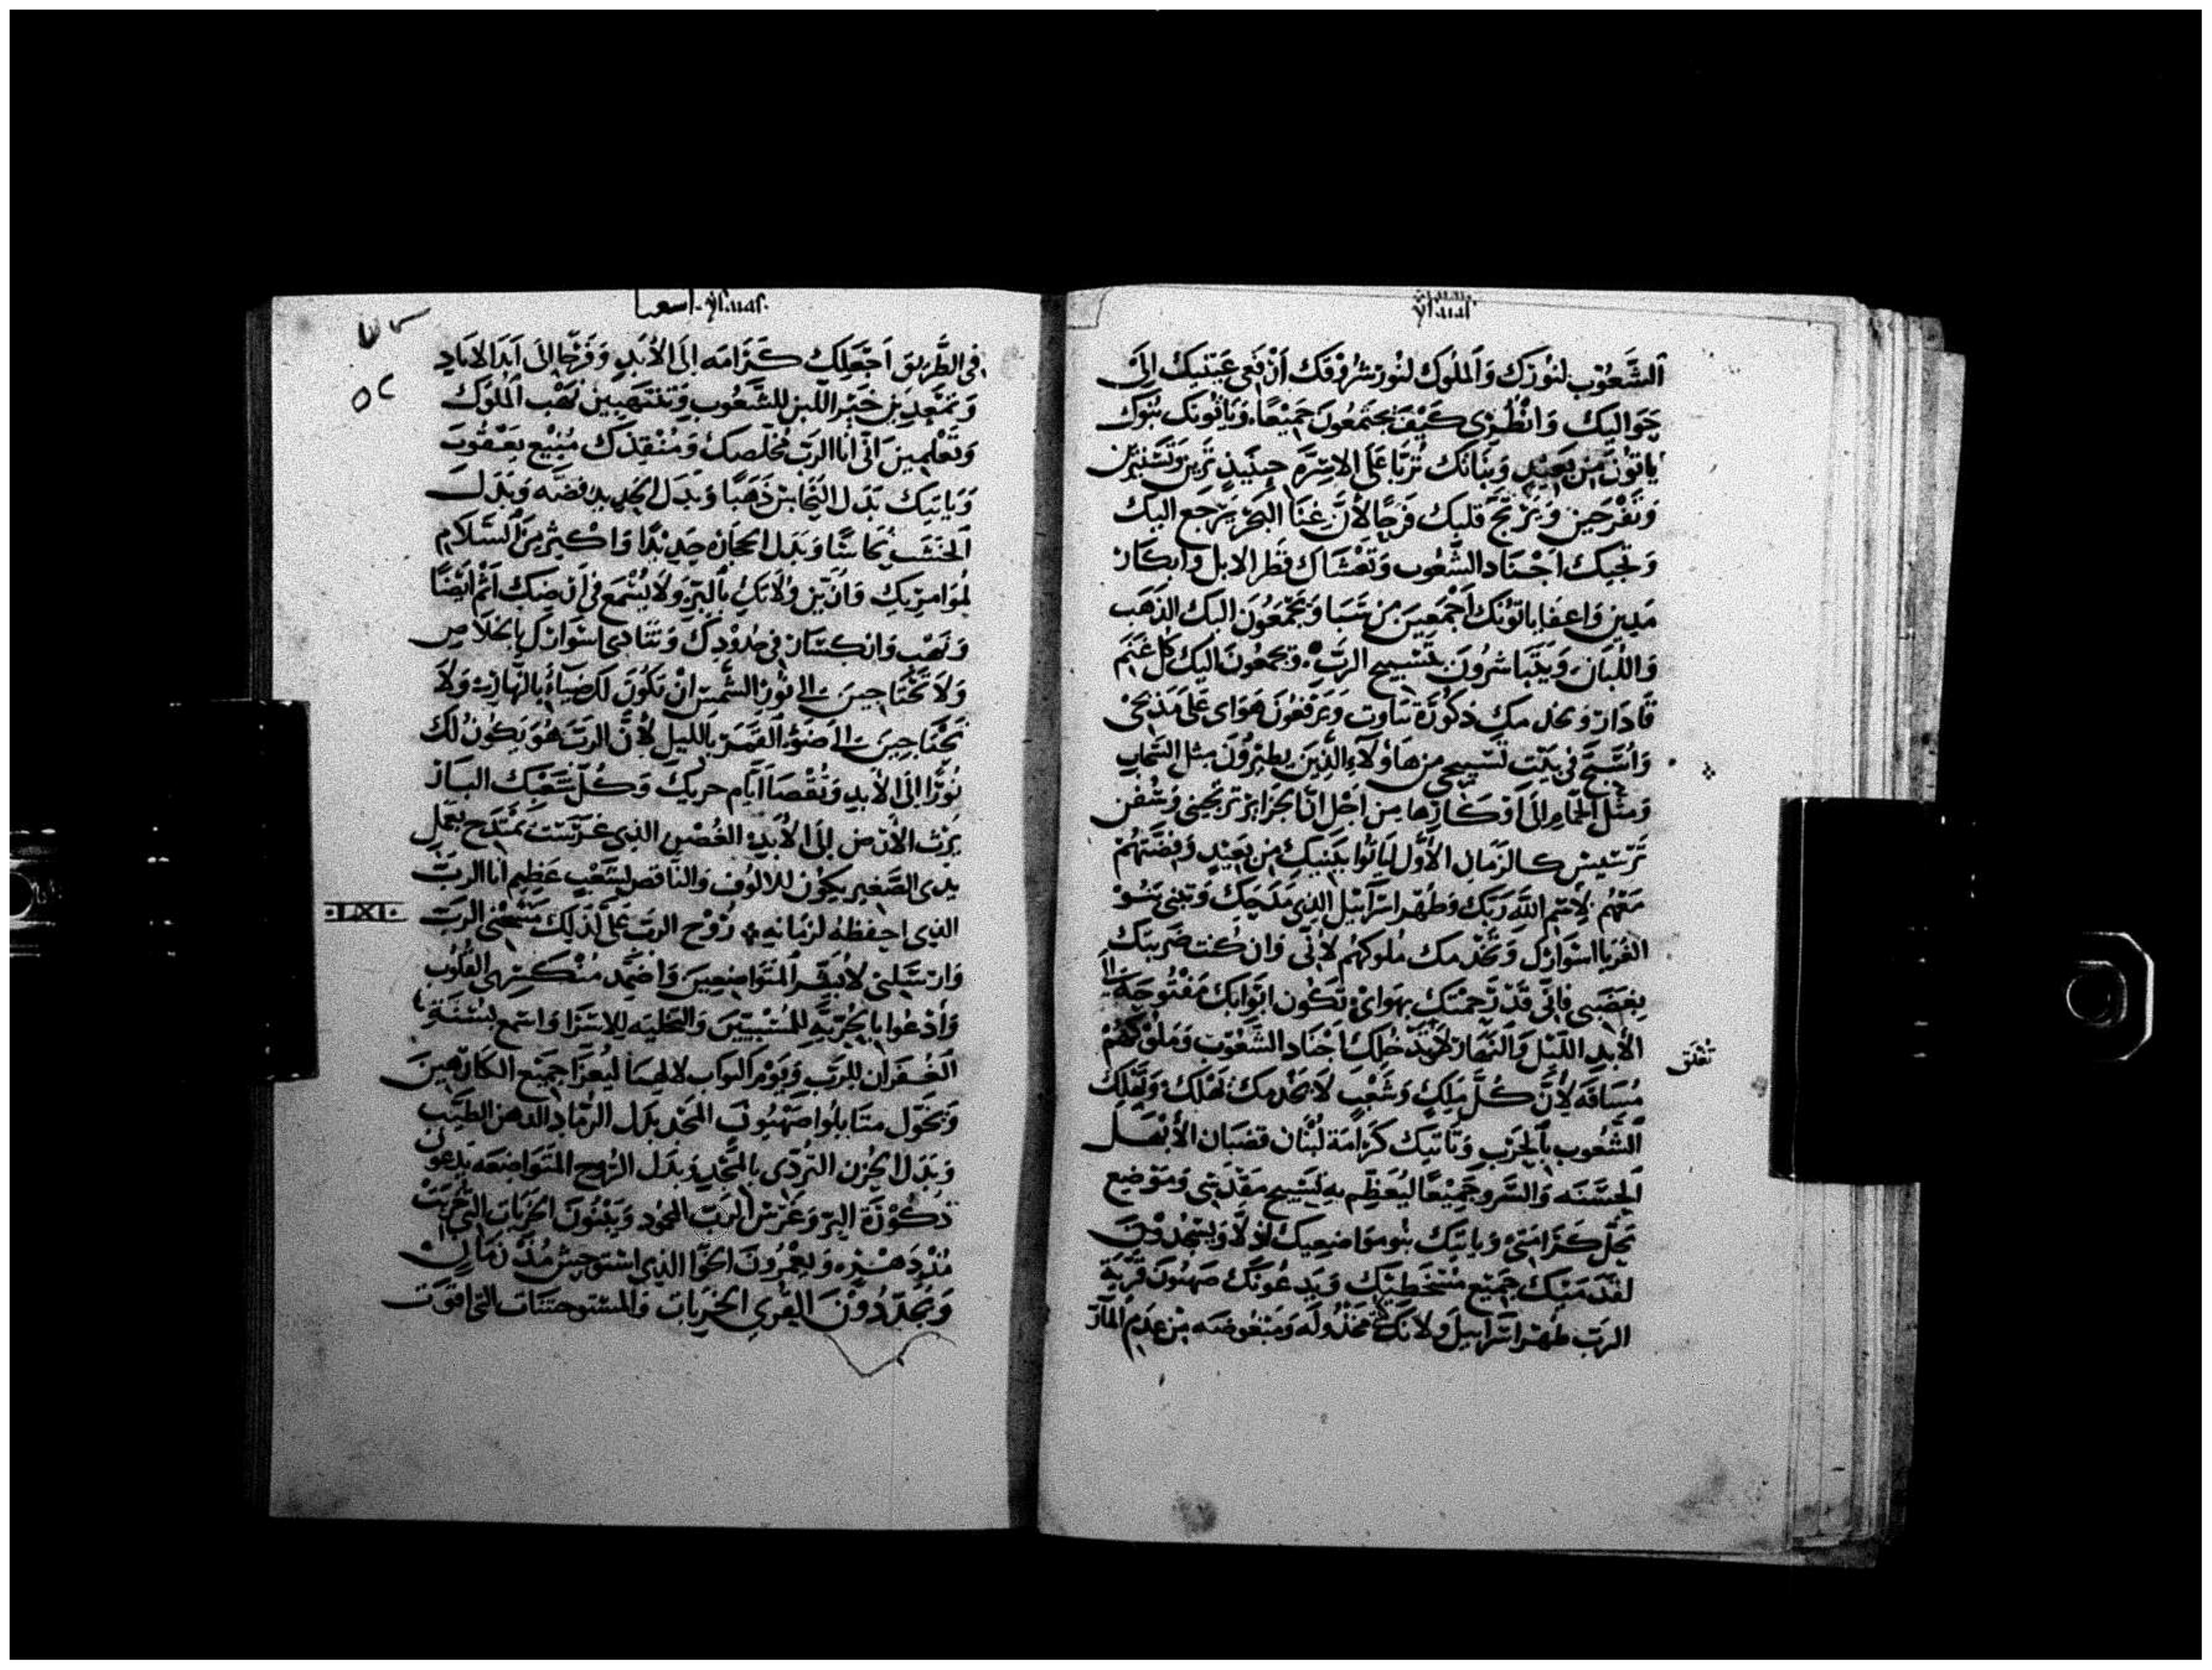 ysaias
الشَّعُوب لنُورَك وَالملُوك لنُور شروقك ارفعى عَينيك الىَ
حَواليك وَانْظُرى كَيْفَ يجتَمعُون جَميْعًا وَيَاتُونك بنُوك
ياتون من بَعيد وَبنَاتك تُربَّا عَلىَ الاسرّه حينَيذ تَرين وَتَستنيرين
وَتفرحين وَيرتج قلبك فرحًا لأنَّ غنَا البَحَر يَرجَع اليك
وَتجيك اجْنَاد الشَّعُوب وَتغشَاك قَطر الابل وابكَار
مَدين وَاعفا ياتُونك اجْمَعينَ من سَبَا وَيجْمَعُونَ اليك الذهَب
وَاللّبَان وَيَتَباشرُونَ بتَسبيح الربّ وَيجمعُونَ اليك كل غنَم
قَادَار وَتخدمك ذكُورَة نباوت وَيَرفَعُونَ هَوَاى عَلىَ مَذبحَى
وَاسَبّحَ فى بَيْت تَسْبيحى من هَاؤلاءِ الذِينَ يطيرُونَ مثل السَّحَاب
وَمثل الحمَام الىَ اوكَارهَا من اجْل انَّ الجَزاير ترتجينى وَسُفن
تَرسيس كالزمَان الأوَّل ليَاتُوا بَبنيكِ من بَعيد وَفضتَهُمْ
مَعَهُم لاسْم اللّه ربّك وَطهر اسرَاييل الذى مَدَحَك وَتبنى بَنُو
الغُرَبا اسوارك وَتخْدمك ملوكهُم لأنّى وَان كُنت ضَربتك
بغضَبى فانّى قَدْ رَحمتك بهَواىْ وَتَكُون ابوَابك مَفتُوحَة الى
الأبد الليْل وَالنهَار لا تغلق يدخلك اجنَاد الشَّعُوب وَملُوكَهُمْ
مُسَاقَه لأنَّ كُلَّ مَلك وَشَعْب لا يخْدمك يَهلك وَتَهْلك
الشَّعُوب بالحَرب وَتَاتيك كَرَامَة لُبْنَان قضبَان الأبهَل
الحسَنَه وَالسَّرو جَميْعًا ليُعَظِّم به تَسبيح مقدَسى وَمَوْضع
تحل كَرَامَتى وَياتيك بنُو مَوَاضعيك اذلّا وَيَسْجُدُونَ
لقدَمَيك جَميْع مُسْخَطيك وَيدعُونَك صَهيُون قَريَة
الربّ طهر اسرَاييل وَلانك مَخْذُولَه وَمَبْغُوضَه من عدم المَار
تُغْلَق
ysaias. اسعيا
٥٢
فى الطَّريق اجْعَلك كَرَامَه الىَ الأبَد وَفَرحًا الىَ ابَد الابَاد
وَتمتَعدين خَيْر اللّبن للشَّعُوب وَتنْتَهبين نَهْب المُلوك
وَتَعْلمين انى انا الرَبّ مُخَلّصك وَمُنْقذك مَنيْع يَعْقُوبَ
وَيَاتيك بَدَل النّحَاس ذَهَبًا وَبَدَل الحَديد فضَّه وَبَدَل
الخشَب نحَاسًا وَبَدَل الحجَاره حَديْدًا وَاكْثر منَ السَّلَام
لموامريك وَلا يُسْمَع فى ارْضك اثم ايضًا
وَنَهْب وَانكسَار فى حدُوْدك وَتَتَنادى اسْوَارك بالخلَاص
وَلا تَحْتَاجينَ الى نُور الشَّمس انْ تكُوْنَ لك ضيَآءً بالنهَار وَلا
تَحْتَاجينَ الى ضَوْء القَمَر بالليل لأنَّ الربَّ هُوَ يكون لك
نُورًا الىَ الأبَد وَتُقْضَا ايَّام حزنك وَكُلّ شَعْبك البَار
يَرث الأرْض الىَ الأبَد الغُصْن الذى غَرَسْت يمْتدح بعَمَل
يَدى الصَّغير يكُون للالُوف وَالناقص لشَعْب عَظيم انا الربّ
الذى احفظهُ لزمَانه رُوْح الربّ عَلىَّ لذلك مَسَحْنى الربّ
وَارسَلنى لأبَشّر المُتَوَاضعينَ وَاضمّد مُنْكسرى القلُوْب
وَادْعوا بالحُرّيَّه للمُسْبيينَ وَالتخليَه للاسرَا وَاسمع بسَنَة
الغُفرَان للربّ وَيَوْم الثواب لالهنَا ليُعزَا جَميْع الكارهينَ
وَيحَوّل متَا بلُوا صَهيُونَ المجْد بدَل الرمَاد الدهن الطيّب
وَبَدَل الحُزن التردّى بالمَجْد وَبدَل الرُوح المتَوَاضعَه يَدعُون
ذكُوْرَة البرّ وَغَرْس الرَبّ المحمُود وَيَبْنُونَ الخرَبَات التى خُربَتْ
مُنْذ دَهْره وَيعْمُرُونَ الخوَا الذى اسْتوحش مُنْذ زمَان
وَيُجَدّدُوْنَ القُرَى الخربَات وَالمُسْتَوحشَات التى اقوَت
·LXI·